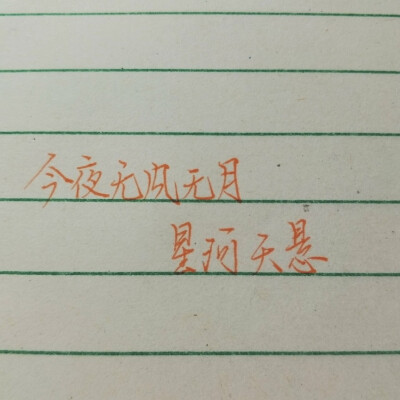 今夜无风无月
星河天悬